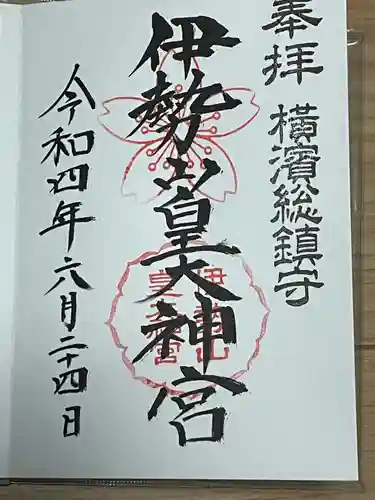 奉拝
横濱総鎮守
伊勢山皇大神宮
伊勢山
皇大神宮
令和四年六月二十四日